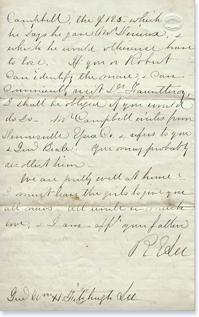 Campbell, the $185. which
he says he gave for Herriers, &
which he would otherwise have
to lose. If you or Robert
can identify the mare, & can
communicate with
I shall be obliged if you would
do so. Mr Campbell writes from
Co. & refers to you
& Genl Beale. You may probably
recollect him.
We are pretty well at home.
I must leave the girls to give you
all news. All unite in much
love, & I am affly your father
R E Lee
Genl Wm H. Fitzhugh Lee